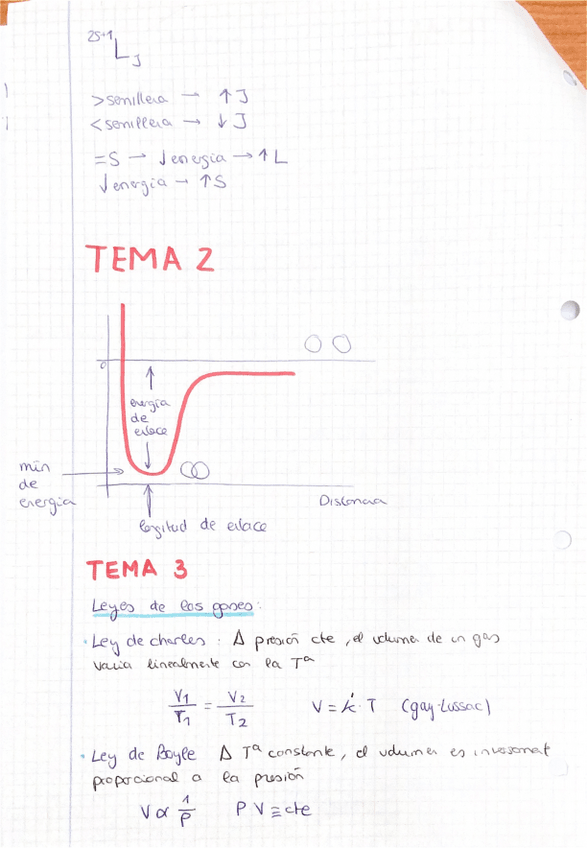 2S+1
L J
>semillena → ↑ J
<semillena → ↓ J
=S → ↓energía → ↑ L
↓energía → ↑S
TEMA 2
0
energía
de
enlace
min
de
energía
Distancia
longitud de enlace
TEMA 3
Leyes de los gases:
· Ley de charles : A presión cte, el volumen de un gas
varia linealmente con la Tª
V1/T1 = V2/T2    V = k' · T    (gay-Lussac)
· Ley de Boyle A Tª constante, el volumen es
proporcional a la presión
V ∝ 1/P    P V ≡ cte